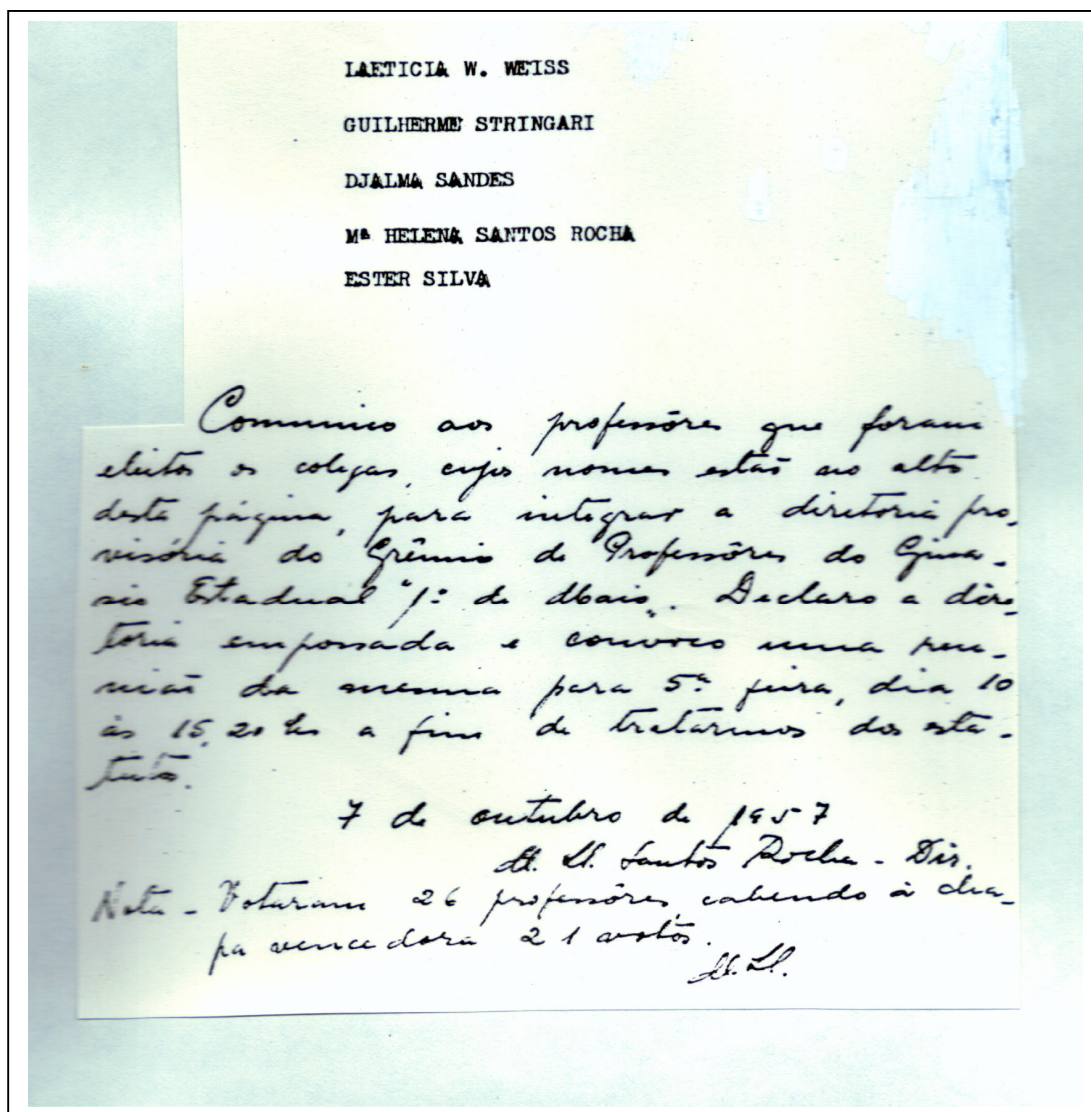 LAETICIA W. WEISS
GUILHERME STRINGARI
DJALMA SANDES
Mª HELENA SANTOS ROCHA
ESTER SILVA
Comunico aos professôres que foram
eleitos os colegas, cujos nomes estão no alto
desta página, para integrar a diretoria pro-
visória do Grêmio de Professôres do Giná-
sio Estadual "1º de Maio". Declaro a dire-
toria empossada e convoco uma reu-
nião da mesma para 5ª feira, dia 10
às 15,20 hs a fim de tratarmos dos esta-
tutos.
7 de outubro de 1957
M. H. Santos Rocha - Dir.
Nota - Votaram 26 professôres, cabendo à cha-
pa vencedora 21 votos.
M. H.